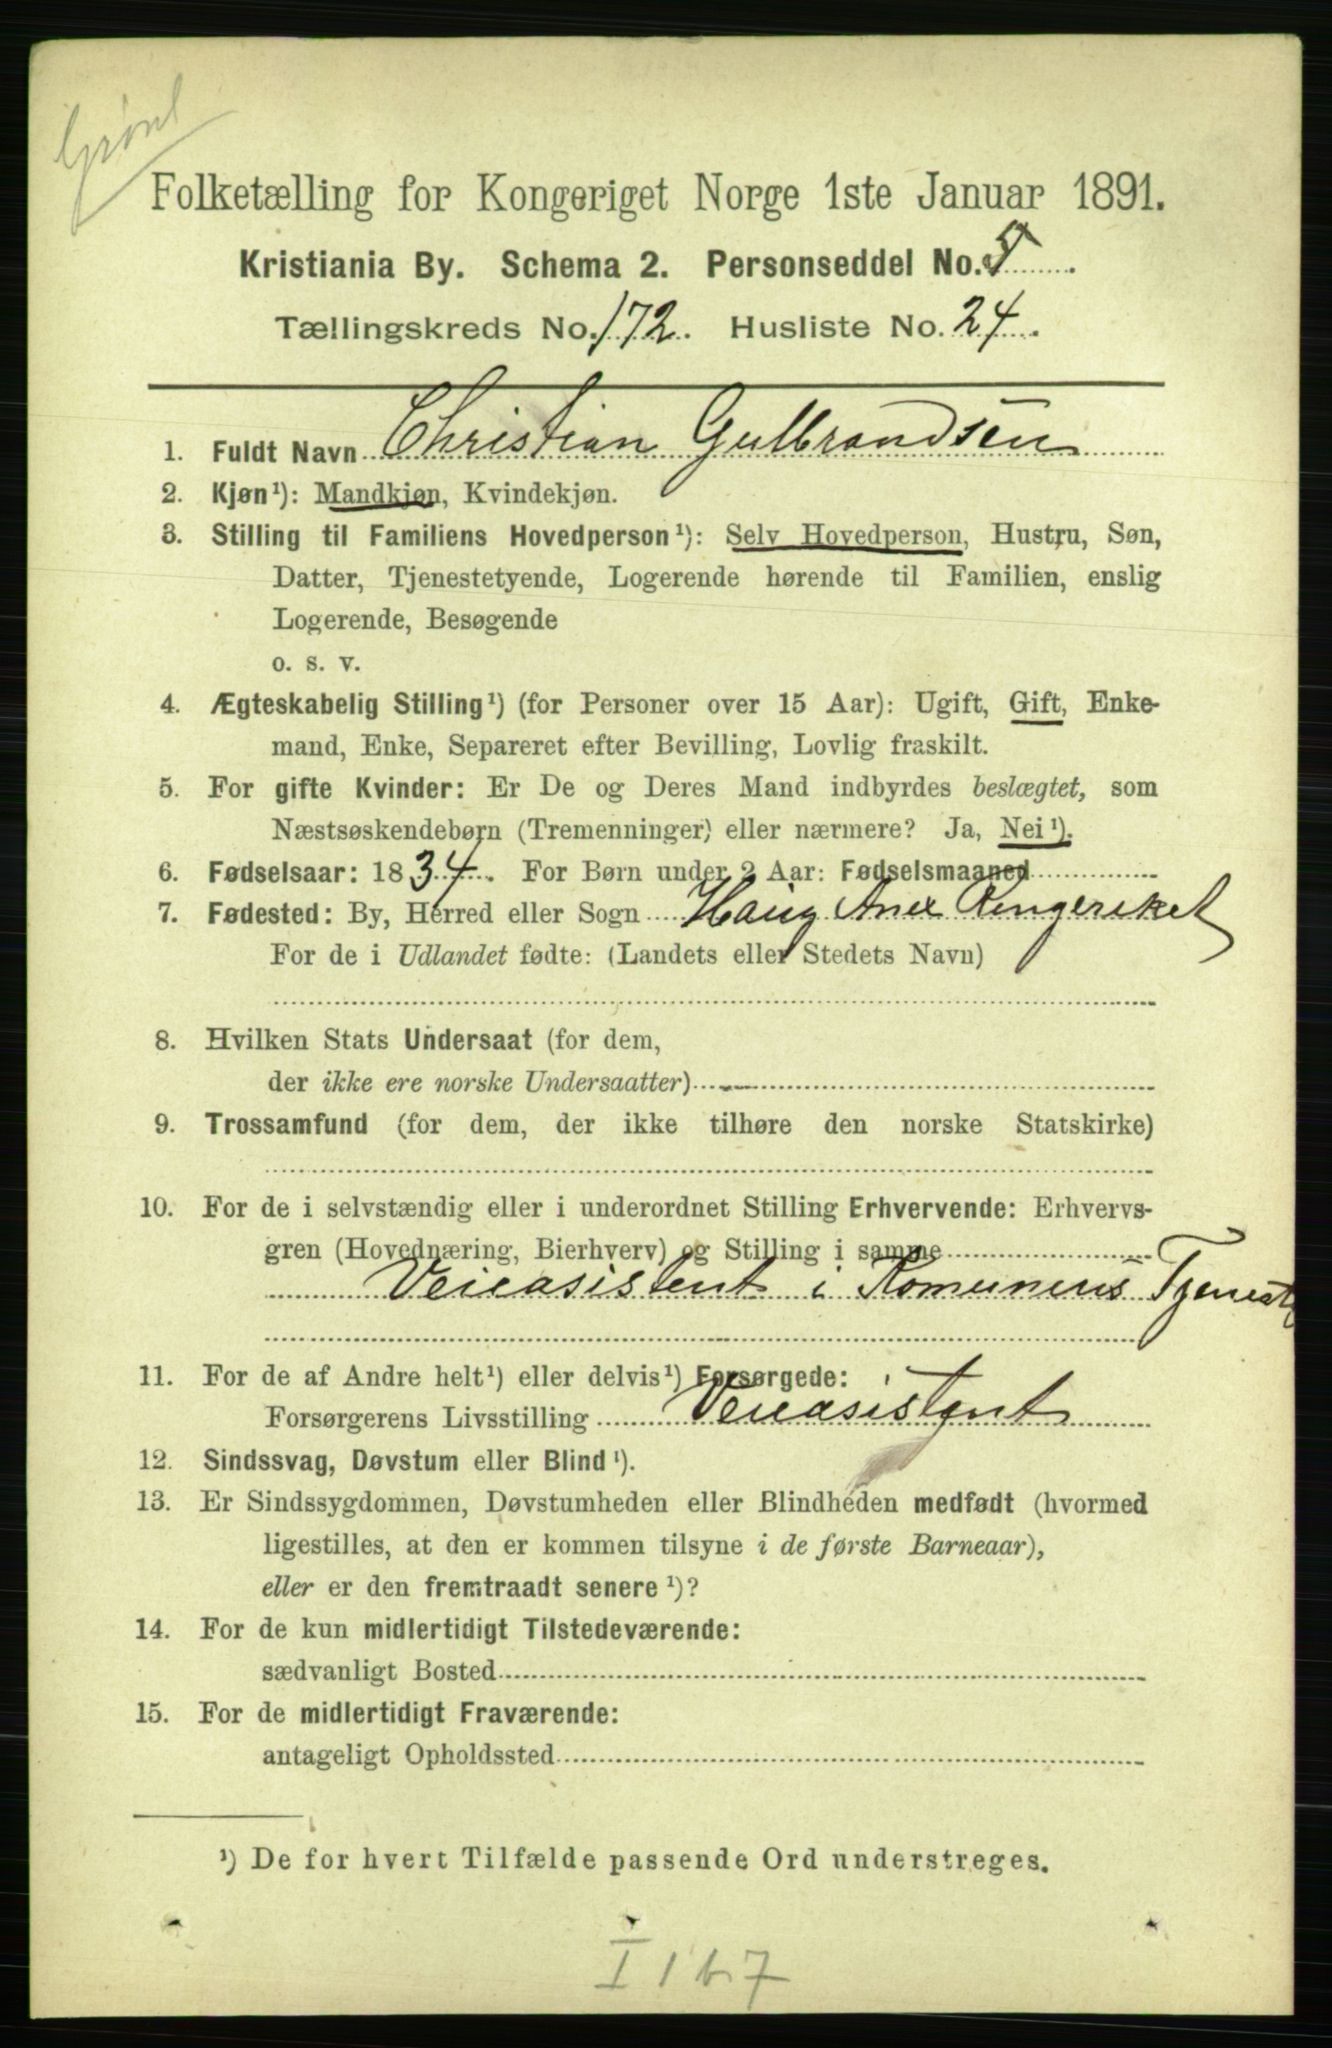 Grønl
Folketælling for Kongeriget Norge 1ste Januar 1891.
Kristiania By. Schema 2. Personseddel No. 5.
Tællingskreds No. 172. Husliste No. 24.
1. Fuldt Navn Christian Gulbrandsen
2. Kjøn¹): Mandkjøn, Kvindekjøn.
3. Stilling til Familiens Hovedperson¹): Selv Hovedperson, Hustru, Søn,
Datter, Tjenestetyende, Logerende hørende til Familien, enslig
Logerende, Besøgende
o. s. v.
4. Ægteskabelig Stilling¹) (for Personer over 15 Aar): Ugift, Gift, Enke-
mand, Enke, Separeret efter Bevilling, Lovlig fraskilt.
5. For gifte Kvinder: Er De og Deres Mand indbyrdes beslægtet, som
Næstsøskendebørn (Tremenninger) eller nærmere? Ja, Nei¹).
6. Fødselsaar: 1834. For Børn under 2 Aar: Fødselsmaaned
7. Fødested: By, Herred eller Sogn Haug Anex Ringeriket
For de i Udlandet fødte: (Landets eller Stedets Navn)
8. Hvilken Stats Undersaat (for dem,
der ikke ere norske Undersaatter)
9. Trossamfund (for dem, der ikke tilhøre den norske Statskirke)
10. For de i selvstændig eller i underordnet Stilling Erhvervende: Erhvervs-
gren (Hovednæring, Bierhverv) og Stilling i samme
Veieasistent i Komunens Tjeneste
11. For de af Andre helt¹) eller delvis¹) Forsørgede:
Forsørgerens Livsstilling Veieasistent
12. Sindssvag, Døvstum eller Blind¹).
13. Er Sindssygdommen, Døvstumheden eller Blindheden medfødt (hvormed
ligestilles, at den er kommen tilsyne i de første Barneaar),
eller er den fremtraadt senere¹)?
14. For de kun midlertidigt Tilstedeværende:
sædvanligt Bosted
15. For de midlertidigt Fraværende:
antageligt Opholdssted
¹) De for hvert Tilfælde passende Ord understreges.
I 1 b 7